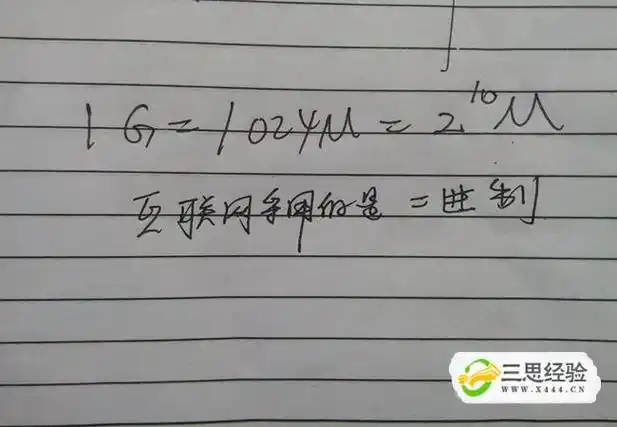 1G=1024M=2¹⁰M
互联网采用的是二进制
三思经验
WWW.X444.CN